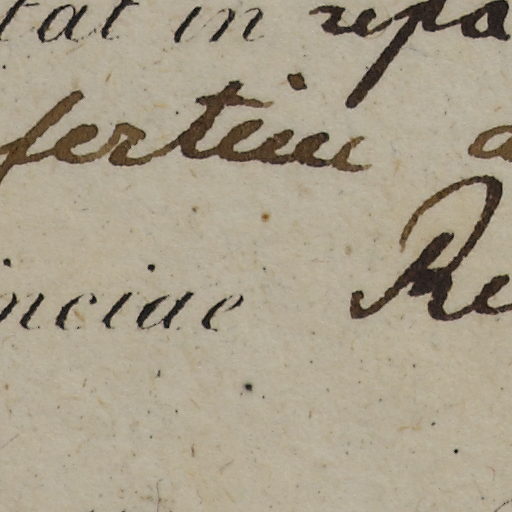 tat in repa
fertim a
inciae Re